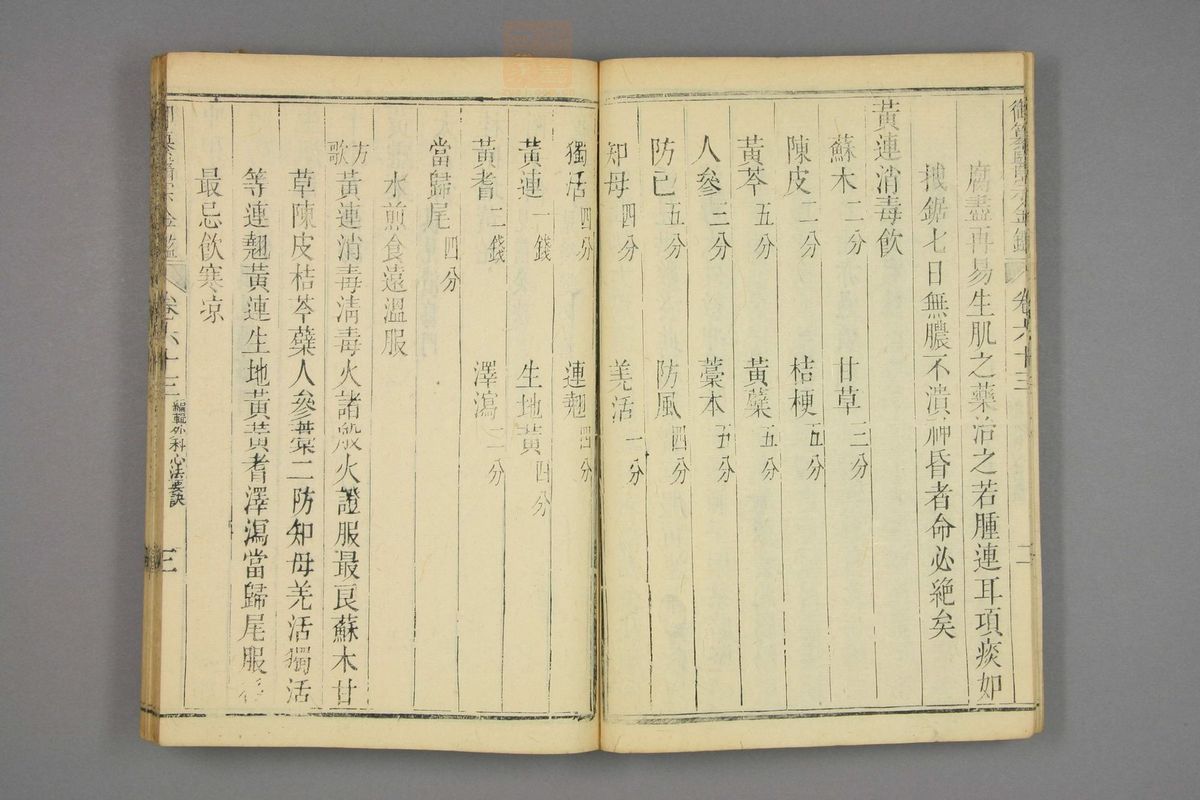 御纂醫宗金鑑 卷六十三 二
腐盡再易生肌之藥治之若腫連耳項痰如
拽鋸七日無膿不潰神昏者命必絶矣
黃連消毒飲
蘇木二分 甘草三分
陳皮二分 桔梗五分
黃芩五分 黃蘗五分
人參三分 藁本五分
防己五分 防風四分
知母四分 羌活一分
獨活四分 連翹四分
黃連一錢 生地黃四分
黃耆二錢 澤瀉二分
當歸尾四分
水煎食遠溫服
方歌 黃連消毒淸毒火諸般火證服最良蘇木甘
草陳皮桔芩蘗人參藁二防知母羌活獨活
等連翹黃連生地黃黃耆澤瀉當歸尾服後
最忌飲寒凉
醫宗金鑑 卷六十三 編輯外科心法要訣 三